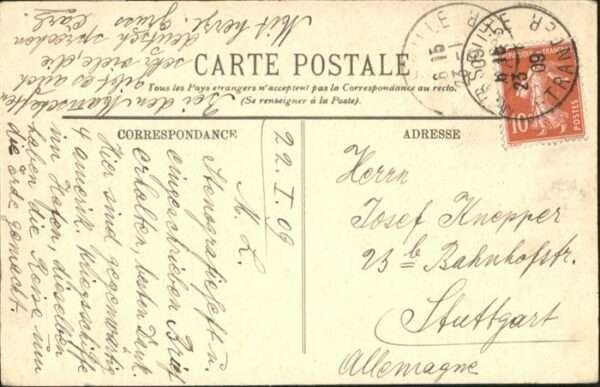 CARTE POSTALE
Tous les Pays étrangers n'acceptent pas la Correspondance au recto.
(Se renseigner à la Poste).
CORRESPONDANCE
ADRESSE
22. I. 09
M. L.
Stenografieheft u.
eingeschrieben Brief
erhalten, besten Dank.
Hier sind gegenwärtig
4 amerik. Kriegsschiffe
im Hafen, dieselben
haben die Reise um
die Erde gemacht.
Bei den Mannschaften
gibt es auch
sehr viele, die
deutsch sprechen
Mit herzl. Gruss
Carl.
Herrn
Josef Knepper
23 b Bahnhofstr.
Stuttgart
Allemagne
ETRANGER
23
09
10
POSTES